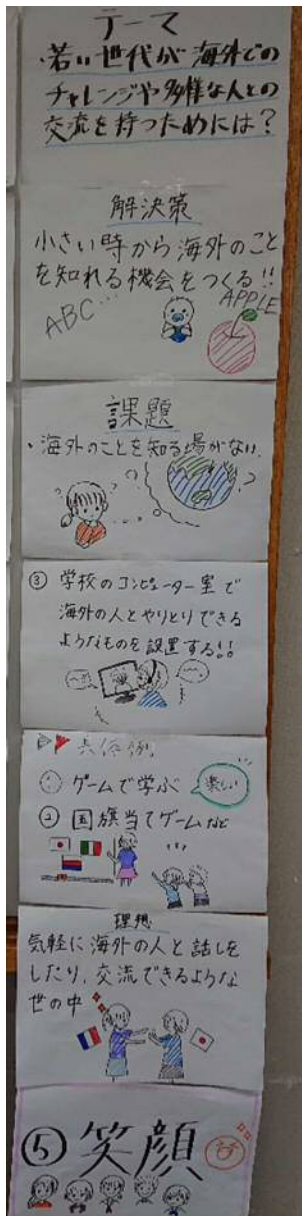 テーマ
・若い世代が海外での
チャレンジや多様な人との
交流を持つためには?
解決策
小さい時から海外のこと
を知れる機会をつくる!!
ABC…
APPLE
課題
・海外のことを知る場がない.
③ 学校のコンピューター室で
海外の人とやりとりできる
ようなものを設置する!!
具体例
① ゲームで学ぶ
楽しい
② 国旗当てゲームなど
理想
気軽に海外の人と話しを
したり、交流できるような
世の中
⑤ 笑顔